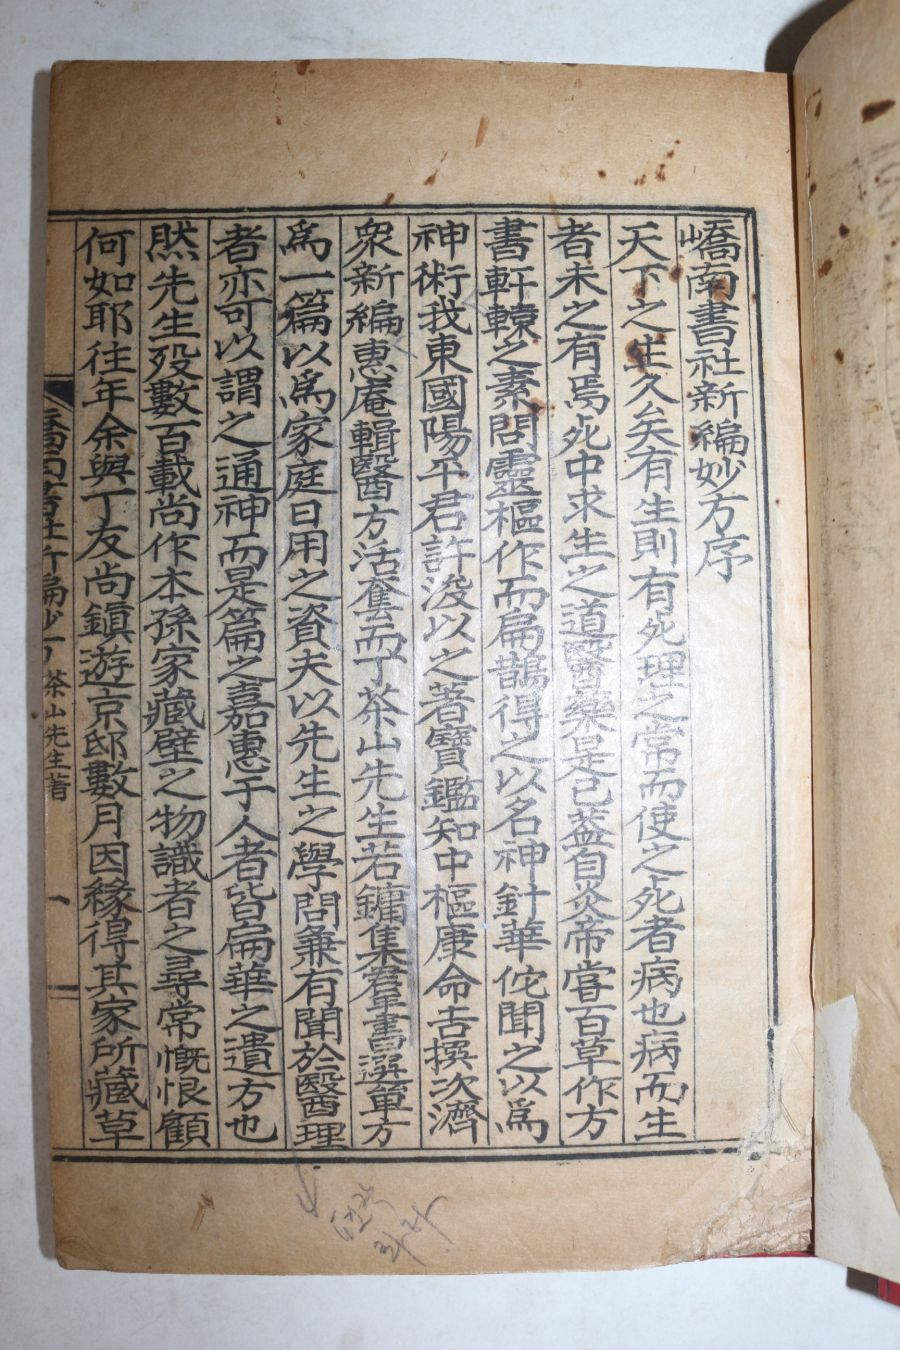 嶠南書社新編妙方序
天下之生久矣有生則有死理之常而使之死者病也病而生
者未之有焉死中求生之道醫藥是已蓋自炎帝嘗百草作方
書軒轅之素問靈樞作而扁鵲得之以名神針華佗聞之以爲
神術我東國陽平君許浚以之著寶鑑知中樞康命吉撰次濟
衆新編惠庵輯醫方活套而丁茶山先生若鏞集群書選單方
爲一篇以爲家庭日用之資夫以先生之學問兼有聞於醫理
者亦可以謂之通神而是篇之嘉惠于人者皆扁華之遺方也
然先生歿數百載尚作本孫家藏壁之物識者之尋常慨恨顧
何如耶往年余與丁友尚鎭遊京邸數月因緣得其家所藏草
嶠南書社新編妙方 茶山先生著 一